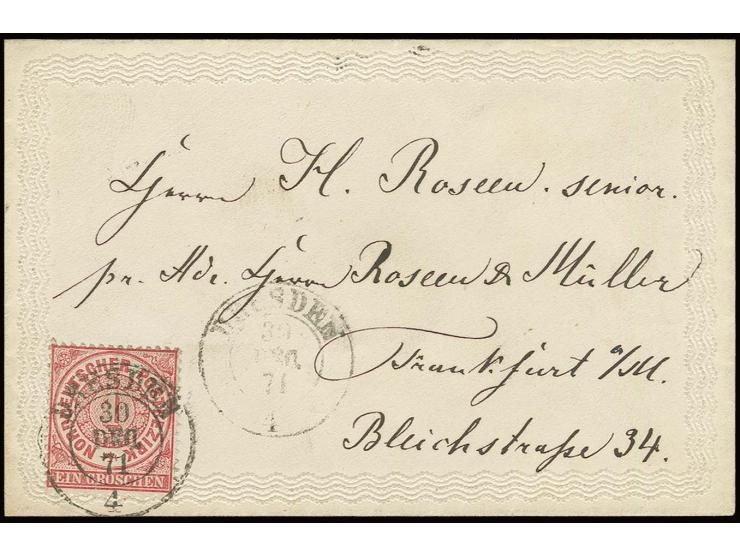 Herrn H. Roseen. senior.
pr. Adr. Herrn Roseen & Müller
Frankfurt a/M.
Bleichstraße 34.
DRESDEN
30
DEC.
71
4
NORDDEUTSCHER POSTBEZIRK
EIN GROSCHEN
DRESDEN
30
DEC.
71
4